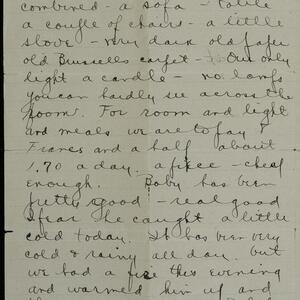 combined - a sofa - table
a couple of chairs - a little
stove - very dark old paper
old Brussells carpet - Our only
light a candle - no lamps
you can hardly see across the
room. For room and light
and meals we are to pay 7
Francs and a half about
1.70 a day. a piece - cheap
enough. Baby has been
pretty good - real good
I fear he caught a little
cold today. It has been very
cold & rainy all day. but
we had a fire this evening
and warmed him up and